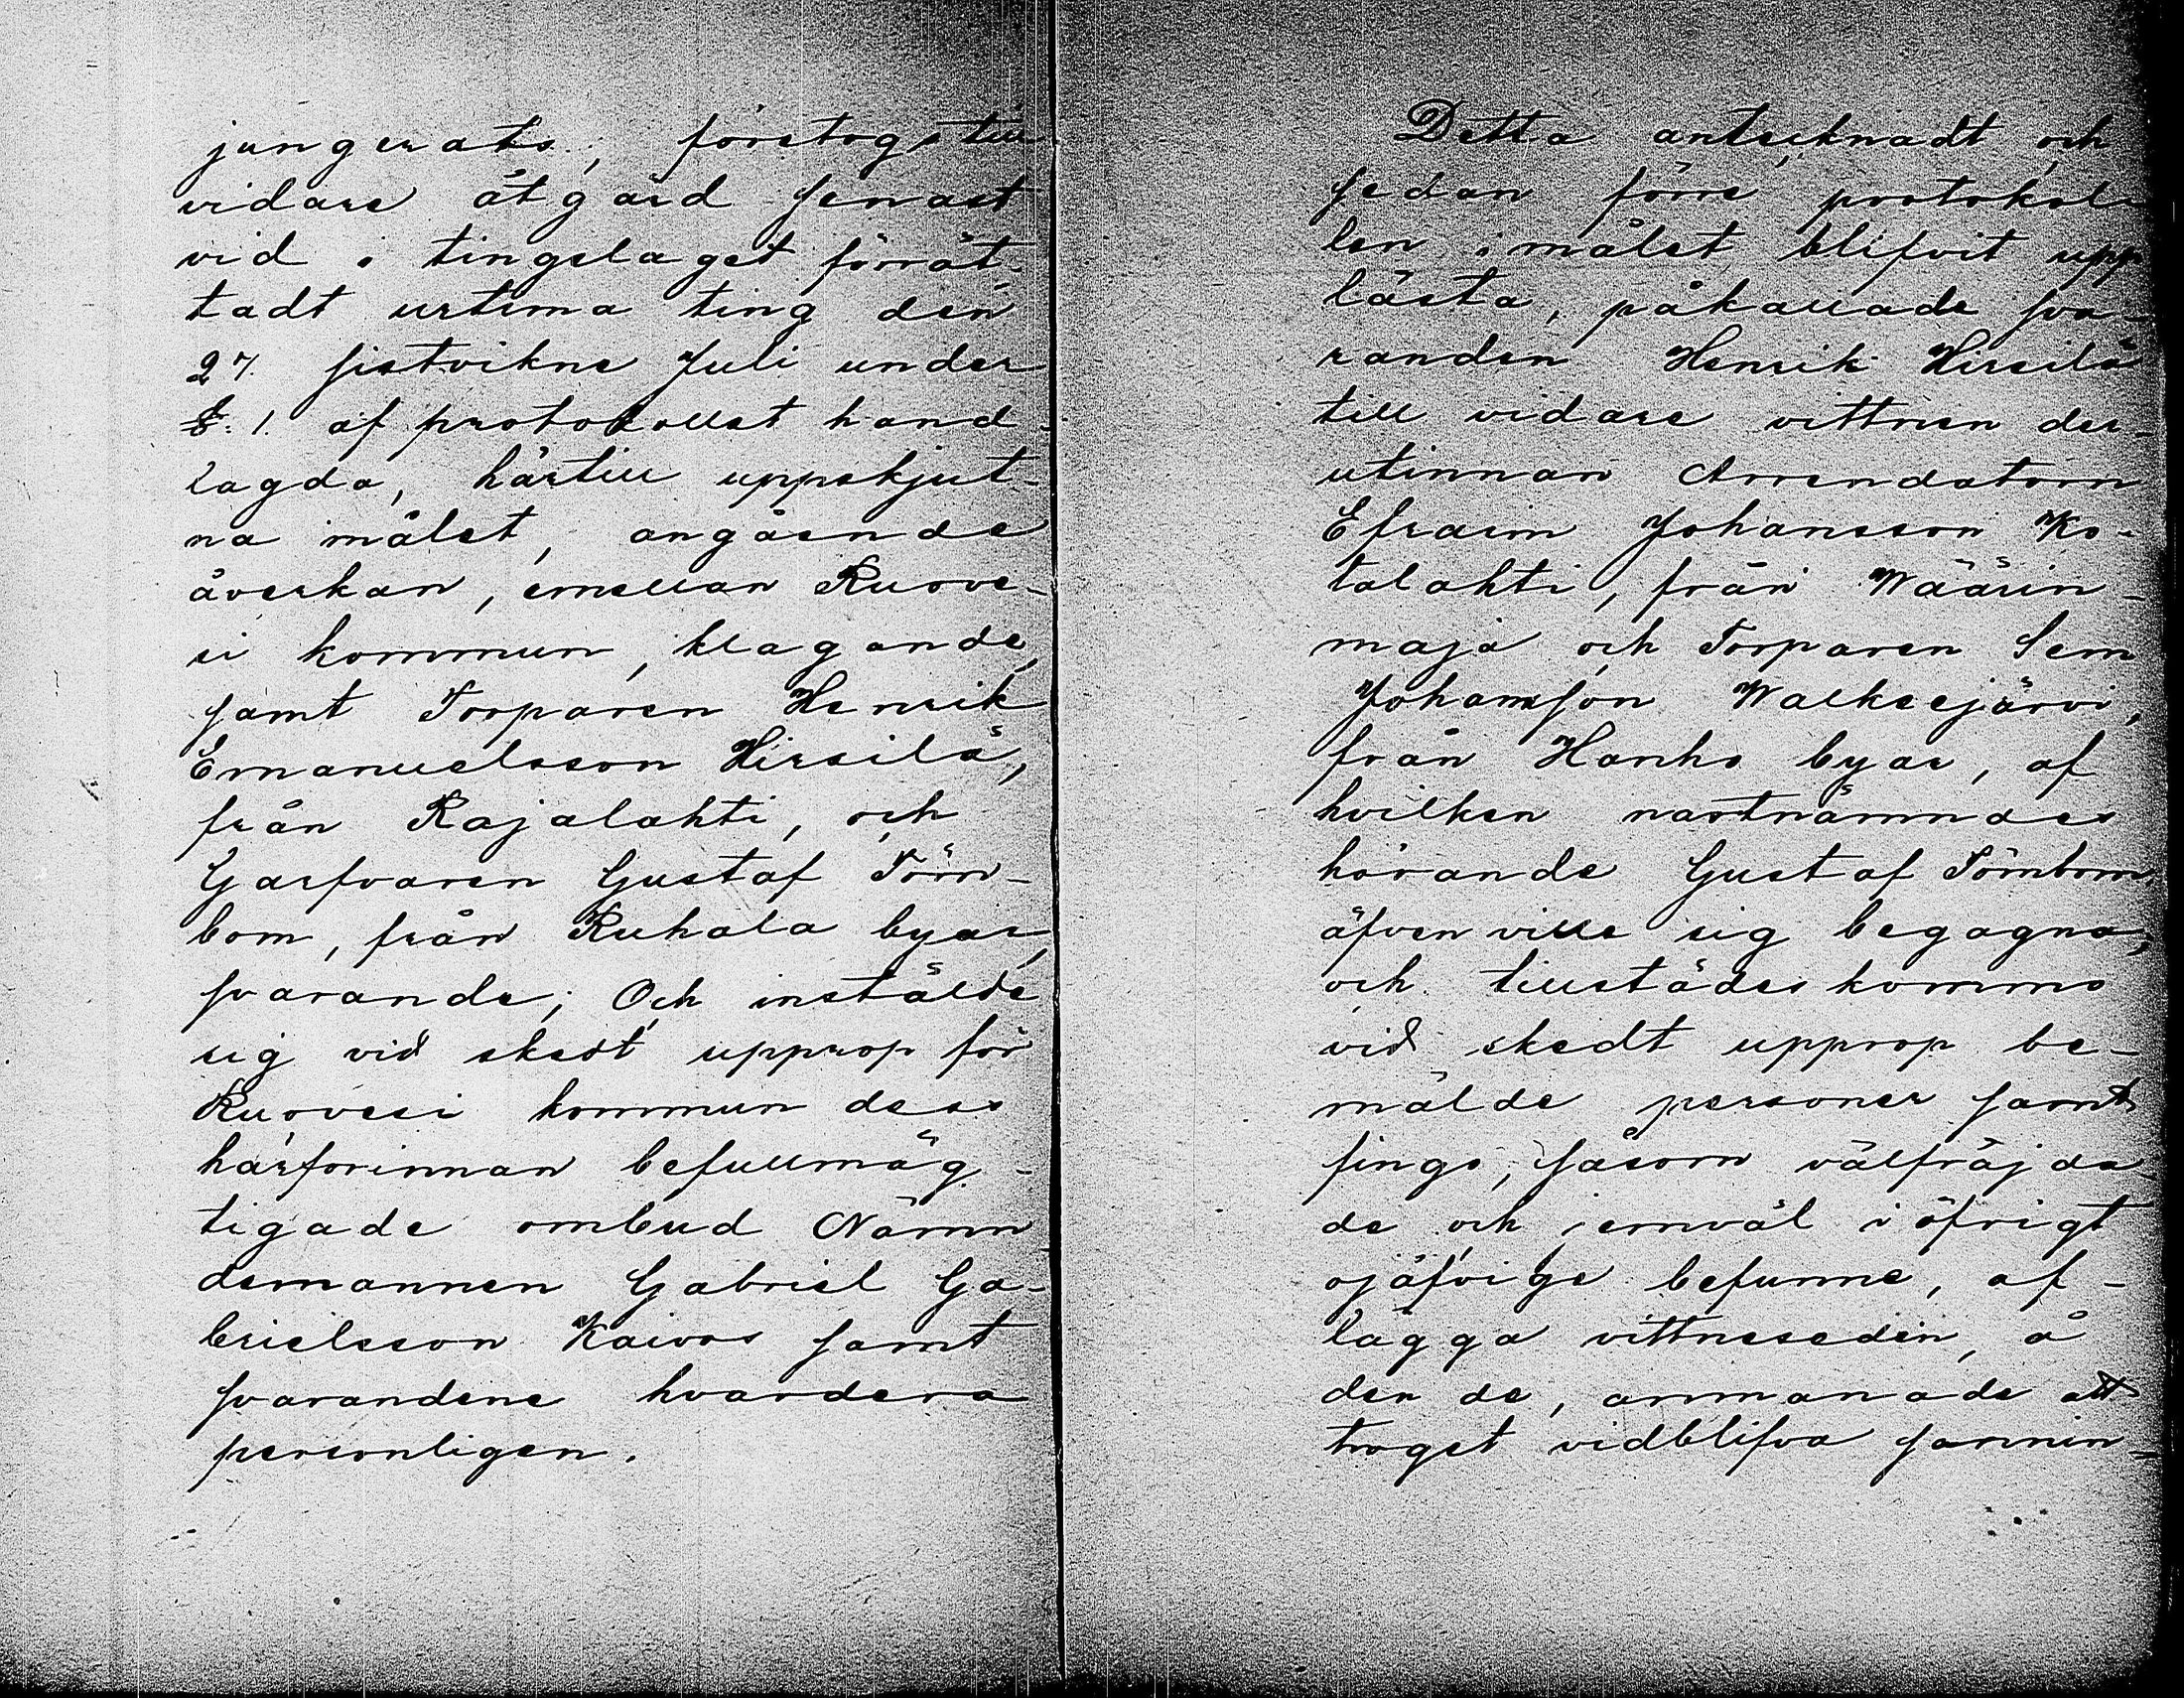 jungerats, företogs till
vidare åtgärd senast
vid i tingslaget förrät-
tadt urtima ting den
27 sistvikne Juli under
§. 1. af protokollet hand-
lagda, härtill uppskjut-
na målet, angående
åverkan, emellan Ruove-
si kommun, klagande,
samt Torparen Henrik
Emanuelsson Hirsilä,
från Rajalahti, och
Garfvaren Gustaf Törn-
bom, från Ruhala byar,
svarande; Och instälde
sig vid skedt upprop för
Ruovesi kommun dess
härforinnan befullmäg-
tigade ombud Nämn-
demannen Gabriel Ga-
brielsson Kaivos samt
svarandene hvardera
personligen.
Detta antecknadt och
sedan förre protokol-
len i målet blifvit upp-
lästa, påkallade sva-
randen Henrik Hirsilä
till vidare vittnen der-
utinnan Arrendatorn
Efraim Johansson Ko-
talahti, från Wäärin-
maja och Torparen Sem
Johansson Walkeejärvi,
från Hanho byar, af
hvilken nästnämndes
hörande Gustaf Törnbom
äfven ville sig begagna,
och tillstädeskommo
vid skedt upprop be-
mälde personer samt
fingo, såsom välfräjda-
de och jemväl i öfrigt
ojäfvige befunne, af-
lägga vittneseden, å
den de, anmanade att
troget vidblifva sannin-